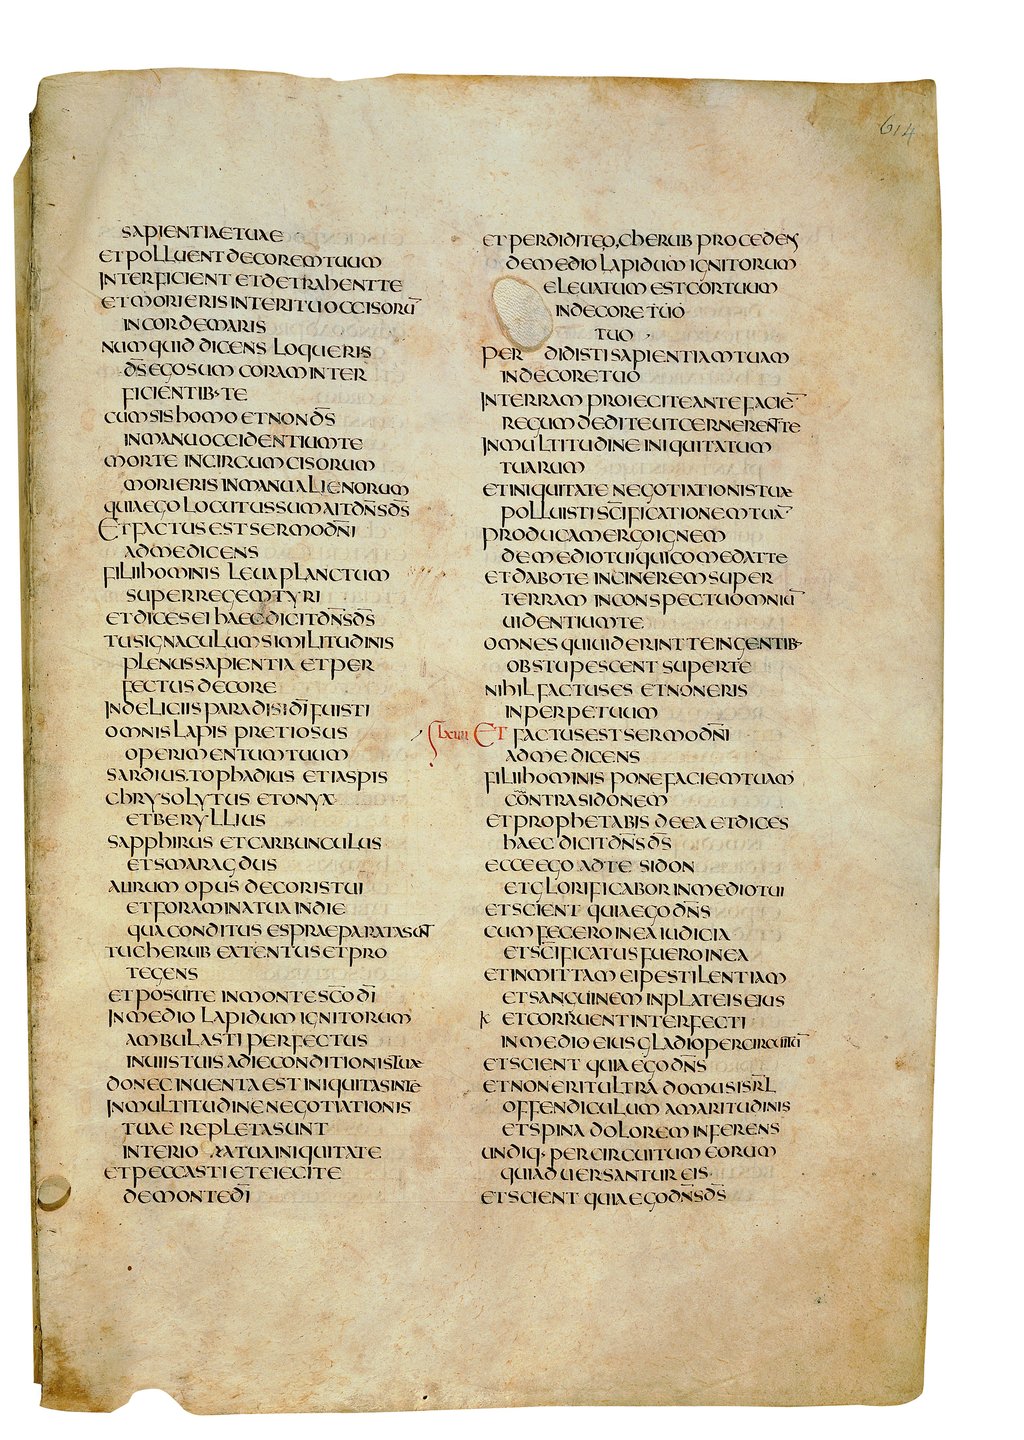 614
SAPIENTIAE TUAE
ET POLLUENT DECOREM TUUM
INTERFICIENT ET DETRAHENT TE
ET MORIERIS INTERITU OCCISORŪ
IN CORDE MARIS
NUMQUID DICENS LOQUERIS
D̄S EGO SUM CORAM INTER
FICIENTIB· TE
CUM SIS HOMO ET NON D̄S
IN MANU OCCIDENTIUM TE
MORTE INCIRCUMCISORUM
MORIERIS IN MANU ALIENORUM
QUIA EGO LOCUTUS SUM AIT DN̄S D̄S
ET FACTUS EST SERMO DN̄I
AD ME DICENS
FILII HOMINIS LEUA PLANCTUM
SUPER REGEM TYRI
ET DICES EI HAEC DICIT DN̄S D̄S
TU SIGNACULUM SIMILITUDINIS
PLENUS SAPIENTIA ET PER
FECTUS DECORE
IN DELICIIS PARADISI D̄I FUISTI
OMNIS LAPIS PRETIOSUS
OPERIMENTUM TUUM
SARDIUS. TOPHADIUS ET IASPIS
CHRYSOLYTUS ET ONYX
ET BERYLLIUS
SAPPHIRUS ET CARBUNCULUS
ET SMARAGDUS
AURUM OPUS DECORIS TUI
ET FORAMINA TUA IN DIE
QUA CONDITUS ES PRAEPARATA SUNT
TU CHERUB EXTENTUS ET PRO
TEGENS
ET POSUI TE IN MONTE SC̄O D̄I
IN MEDIO LAPIDUM IGNITORUM
AMBULASTI PERFECTUS
IN UIIS TUIS A DIE CONDITIONIS TUAE
DONEC INUENTA EST INIQUITAS IN TE
IN MULTITUDINE NEGOTIATIONIS
TUAE REPLETA SUNT
INTERIO RA TUA INIQUITATE
ET PECCASTI ET EIECI TE
DE MONTE D̄I
ET PERDIDI TE O, CHERUB PROCEDENS
DE MEDIO LAPIDUM IGNITORUM
ELEUATUM EST COR TUUM
IN DECORE TUO
TUO
PER DIDISTI SAPIENTIAM TUAM
IN DECORE TUO
IN TERRAM PROIECI TE ANTE FACIĒ
REGUM DEDI TE UT CERNERENT TE
IN MULTITUDINE INIQUITATUM
TUARUM
ET INIQUITATE NEGOTIATIONIS TUAE
POLLUISTI SC̄IFICATIONEM TUĀ
PRODUCAM ERGO IGNEM
DE MEDIO TUI QUI COMEDAT TE
ET DABO TE IN CINEREM SUPER
TERRAM IN CONSPECTU OMNIŪ
UIDENTIUM TE
OMNES QUI UIDERINT TE IN GENTIB·
OBSTUPESCENT SUPER TE
NIHIL FACTUS ES ET NON ERIS
IN PERPETUUM
LXUIII ET FACTUS EST SERMO DN̄I
AD ME DICENS
FILII HOMINIS PONE FACIEM TUAM
CONTRA SIDONEM
ET PROPHETABIS DE EA ET DICES
HAEC DICIT DN̄S D̄S
ECCE EGO AD TE SIDON
ET GLORIFICABOR IN MEDIO TUI
ET SCIENT QUIA EGO DN̄S
CUM FECERO IN EA IUDICIA
ET SC̄IFICATUS FUERO IN EA
ET INMITTAM EI PESTILENTIAM
ET SANGUINEM IN PLATEIS EIUS
ET CORRUENT INTERFECTI
IN MEDIO EIUS GLADIO PER CIRCUITŪ
ET SCIENT QUIA EGO DN̄S
ET NON ERIT ULTRA DOMUI ISRL̄
OFFENDICULUM AMARITUDINIS
ET SPINA DOLOREM INFERENS
UNDIQ· PER CIRCUITUM EORUM
QUI ADUERSANTUR EIS
ET SCIENT QUIA EGO DN̄S D̄S